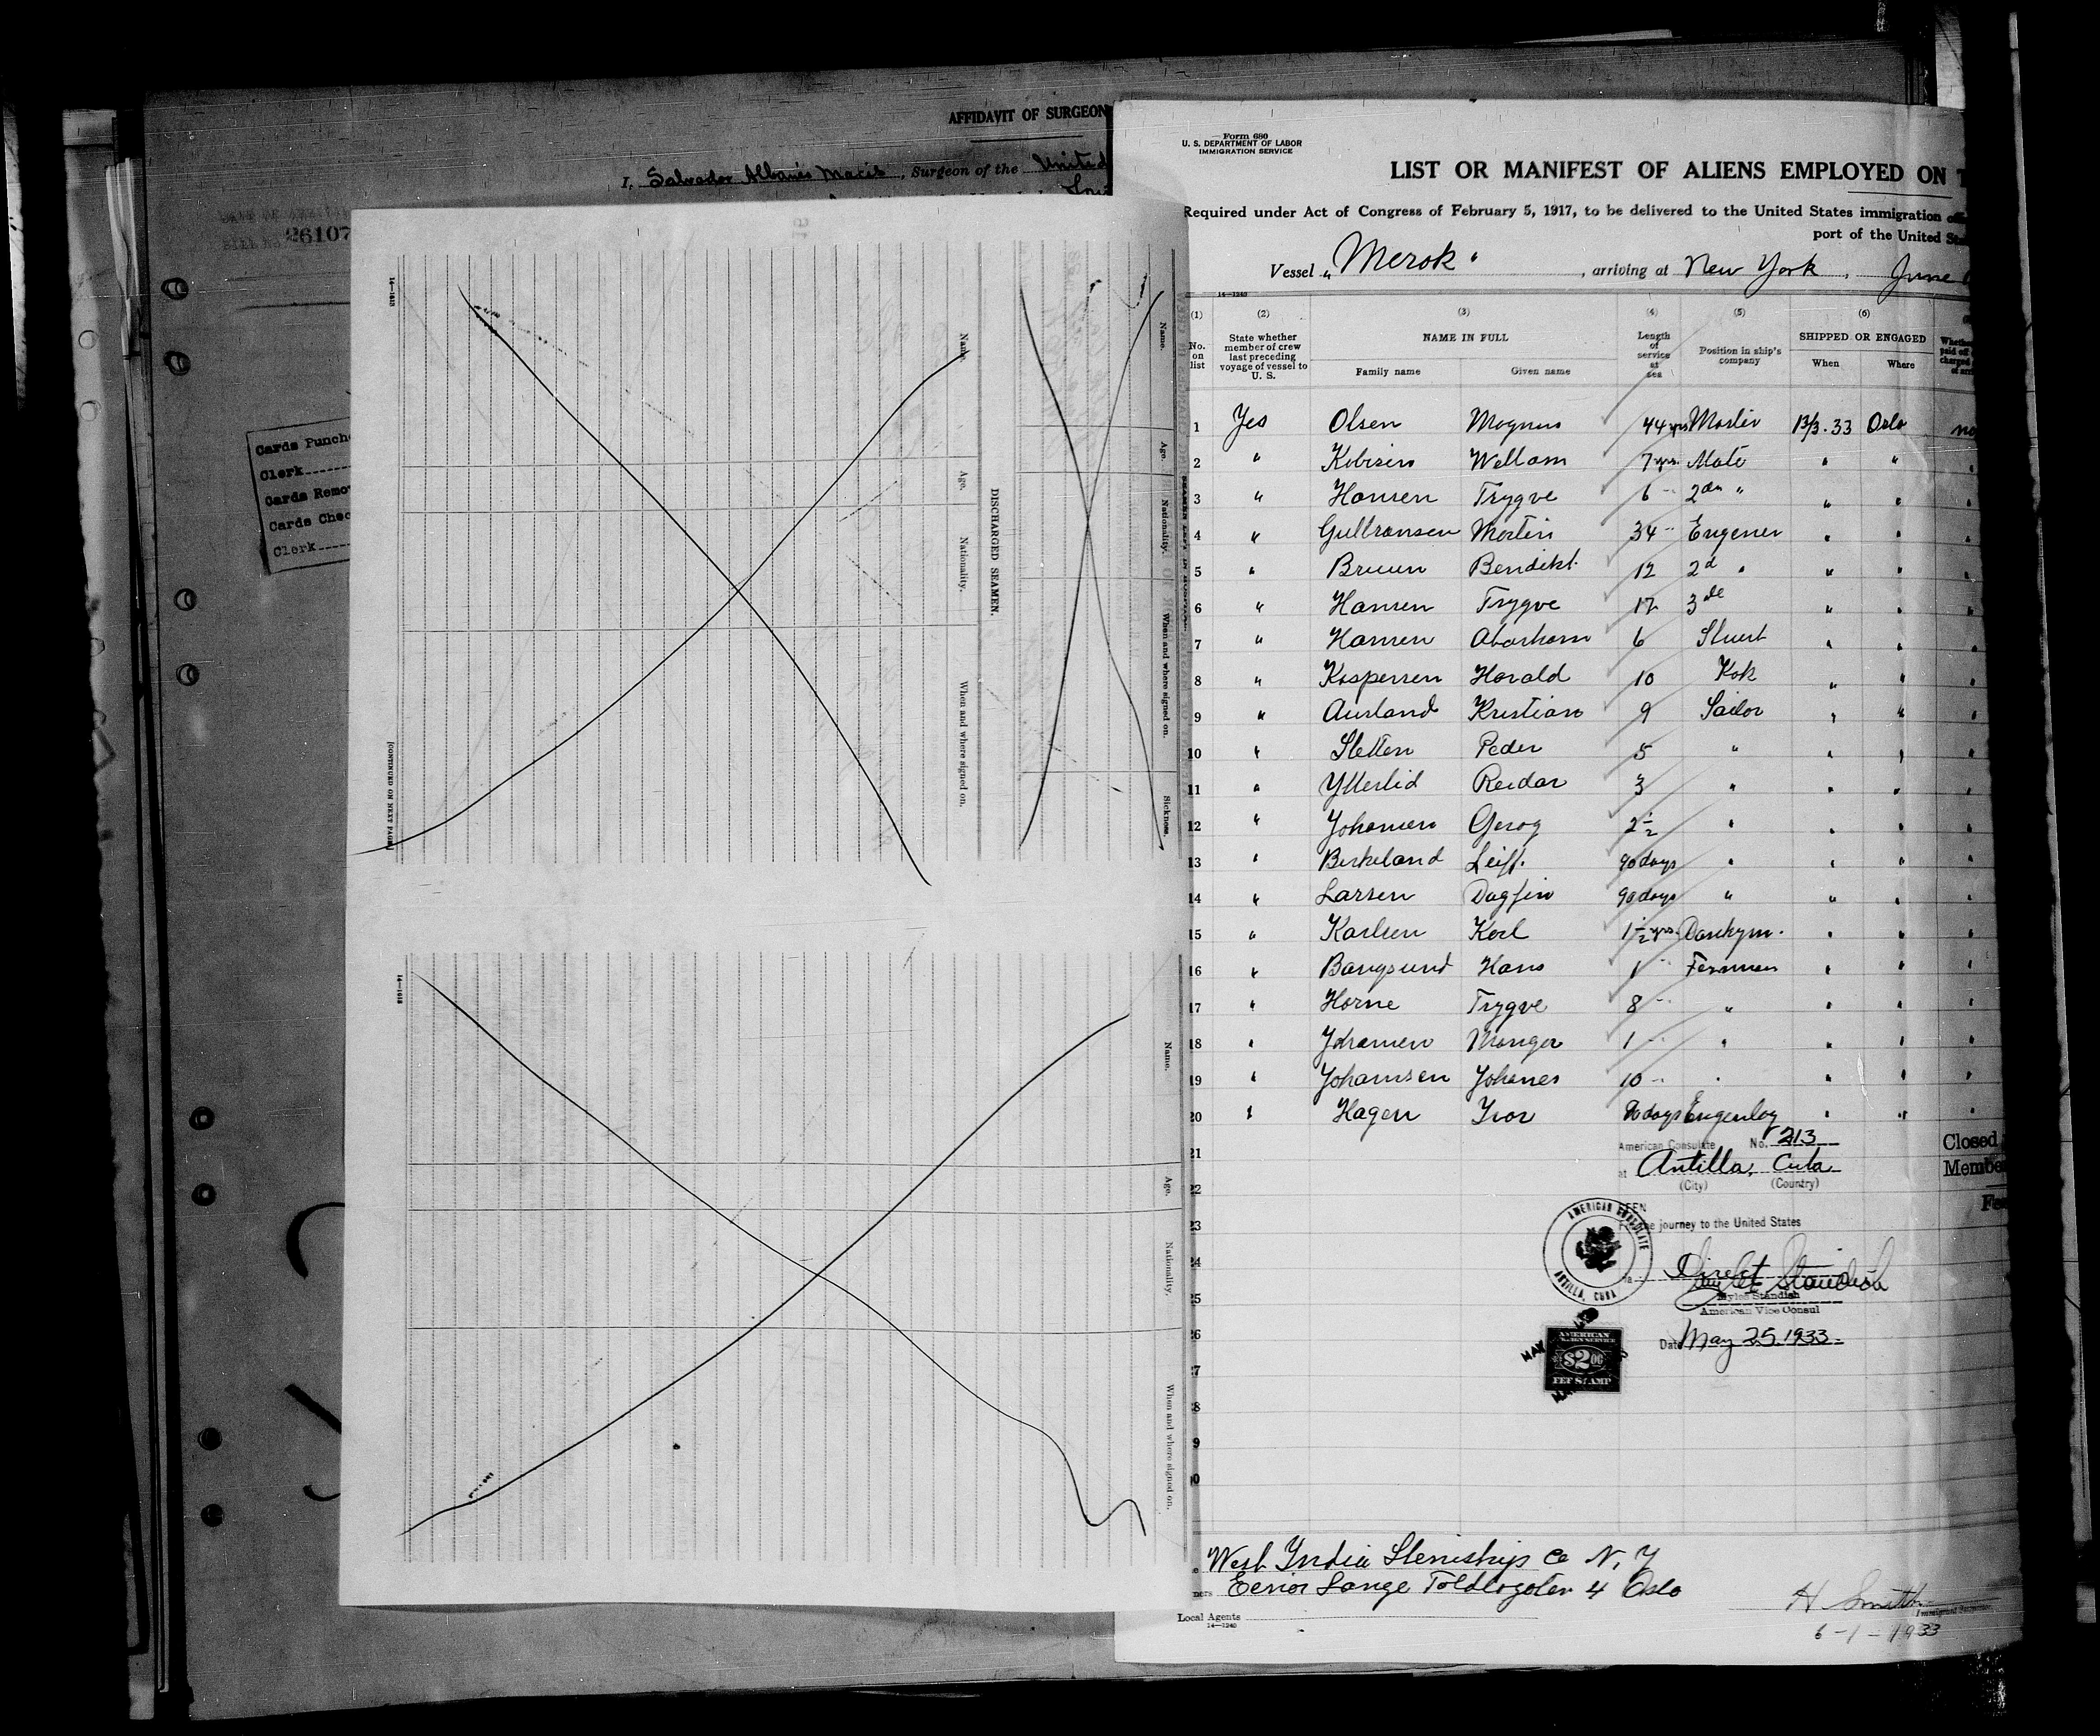 AFFIDAVIT OF SURGEON
I, Salvador Albanés Macis, Surgeon of the United
26107
Cards Punch
Clerk
Cards Remov
Cards Chec
Clerk
14—1543
Name.
Age.
Nationality.
When and where signed on.
DISCHARGED SEAMEN.
Name.
Age.
Nationality.
When and where signed on.
Sickness.
[CONTINUED ON NEXT PAGE]
Name.
Age.
Nationality.
When and where signed on.
Form 680
U. S. DEPARTMENT OF LABOR
IMMIGRATION SERVICE
LIST OR MANIFEST OF ALIENS EMPLOYED ON T
Required under Act of Congress of February 5, 1917, to be delivered to the United States immigration
port of the United
Vessel "Merok", arriving at New York, June
14—1240
(1) (2) (3) (4) (5) (6)
No. on list
State whether member of crew last preceding voyage of vessel to U. S.
NAME IN FULL
Family name Given name
Length of service at sea
Position in ship's company
SHIPPED OR ENGAGED
When Where
1 Yes Olsen Magnus 44 yrs Master 13/3.33 Oslo no
2 " Wellam 7 yrs Mate " "
3 " Hansen Trygve 6 " 2den " " "
4 " Gulbransen Morten 34 " Engener " "
5 " Bruun Bendikt. 12 2d " " "
6 " Hansen Trygve 12 3de " "
7 " Hansen Abarham 6 Stuert " "
8 " Kaspersen Harald 10 Kok " "
9 " Aursland Kristian 9 Sailor " "
10 " Sletten Peder 5 " " "
11 " Ytterlid Reidar 3 " " "
12 " Johansen Georg 2 1/2 " " "
13 " Birkeland Leiff. 90 days " " "
14 " Larsen Dagfin 90 days " " "
15 " Karlsen Karl 1 1/2 yrs. Donkym. " "
16 " Bangsund Hans 1 " " "
17 " Horne Trygve 8 " " " "
18 " Johansen 1 " " " "
19 " Johansen Johanes 10 " " " "
20 " Hagen Ivor 90 days " "
21
22
23
24
25
26
American Consulate No. 213
at Antilla, Cuba
(City) (Country)
SEEN
For the journey to the United States
Direct
Myles Standish
Myles Standish
American Vice Consul
Date May 25, 1933.
AMERICAN CONSULATE
ANTILLA, CUBA
AMERICAN
FOREIGN SERVICE
$2.00
FEE STAMP
Closed
Membe
Fe
West India Stemship Co N. Y
Lange Toldbogaten 4 Oslo
Local Agents
14—1240
H Smith
Immigrant Inspector.
6-1-1933